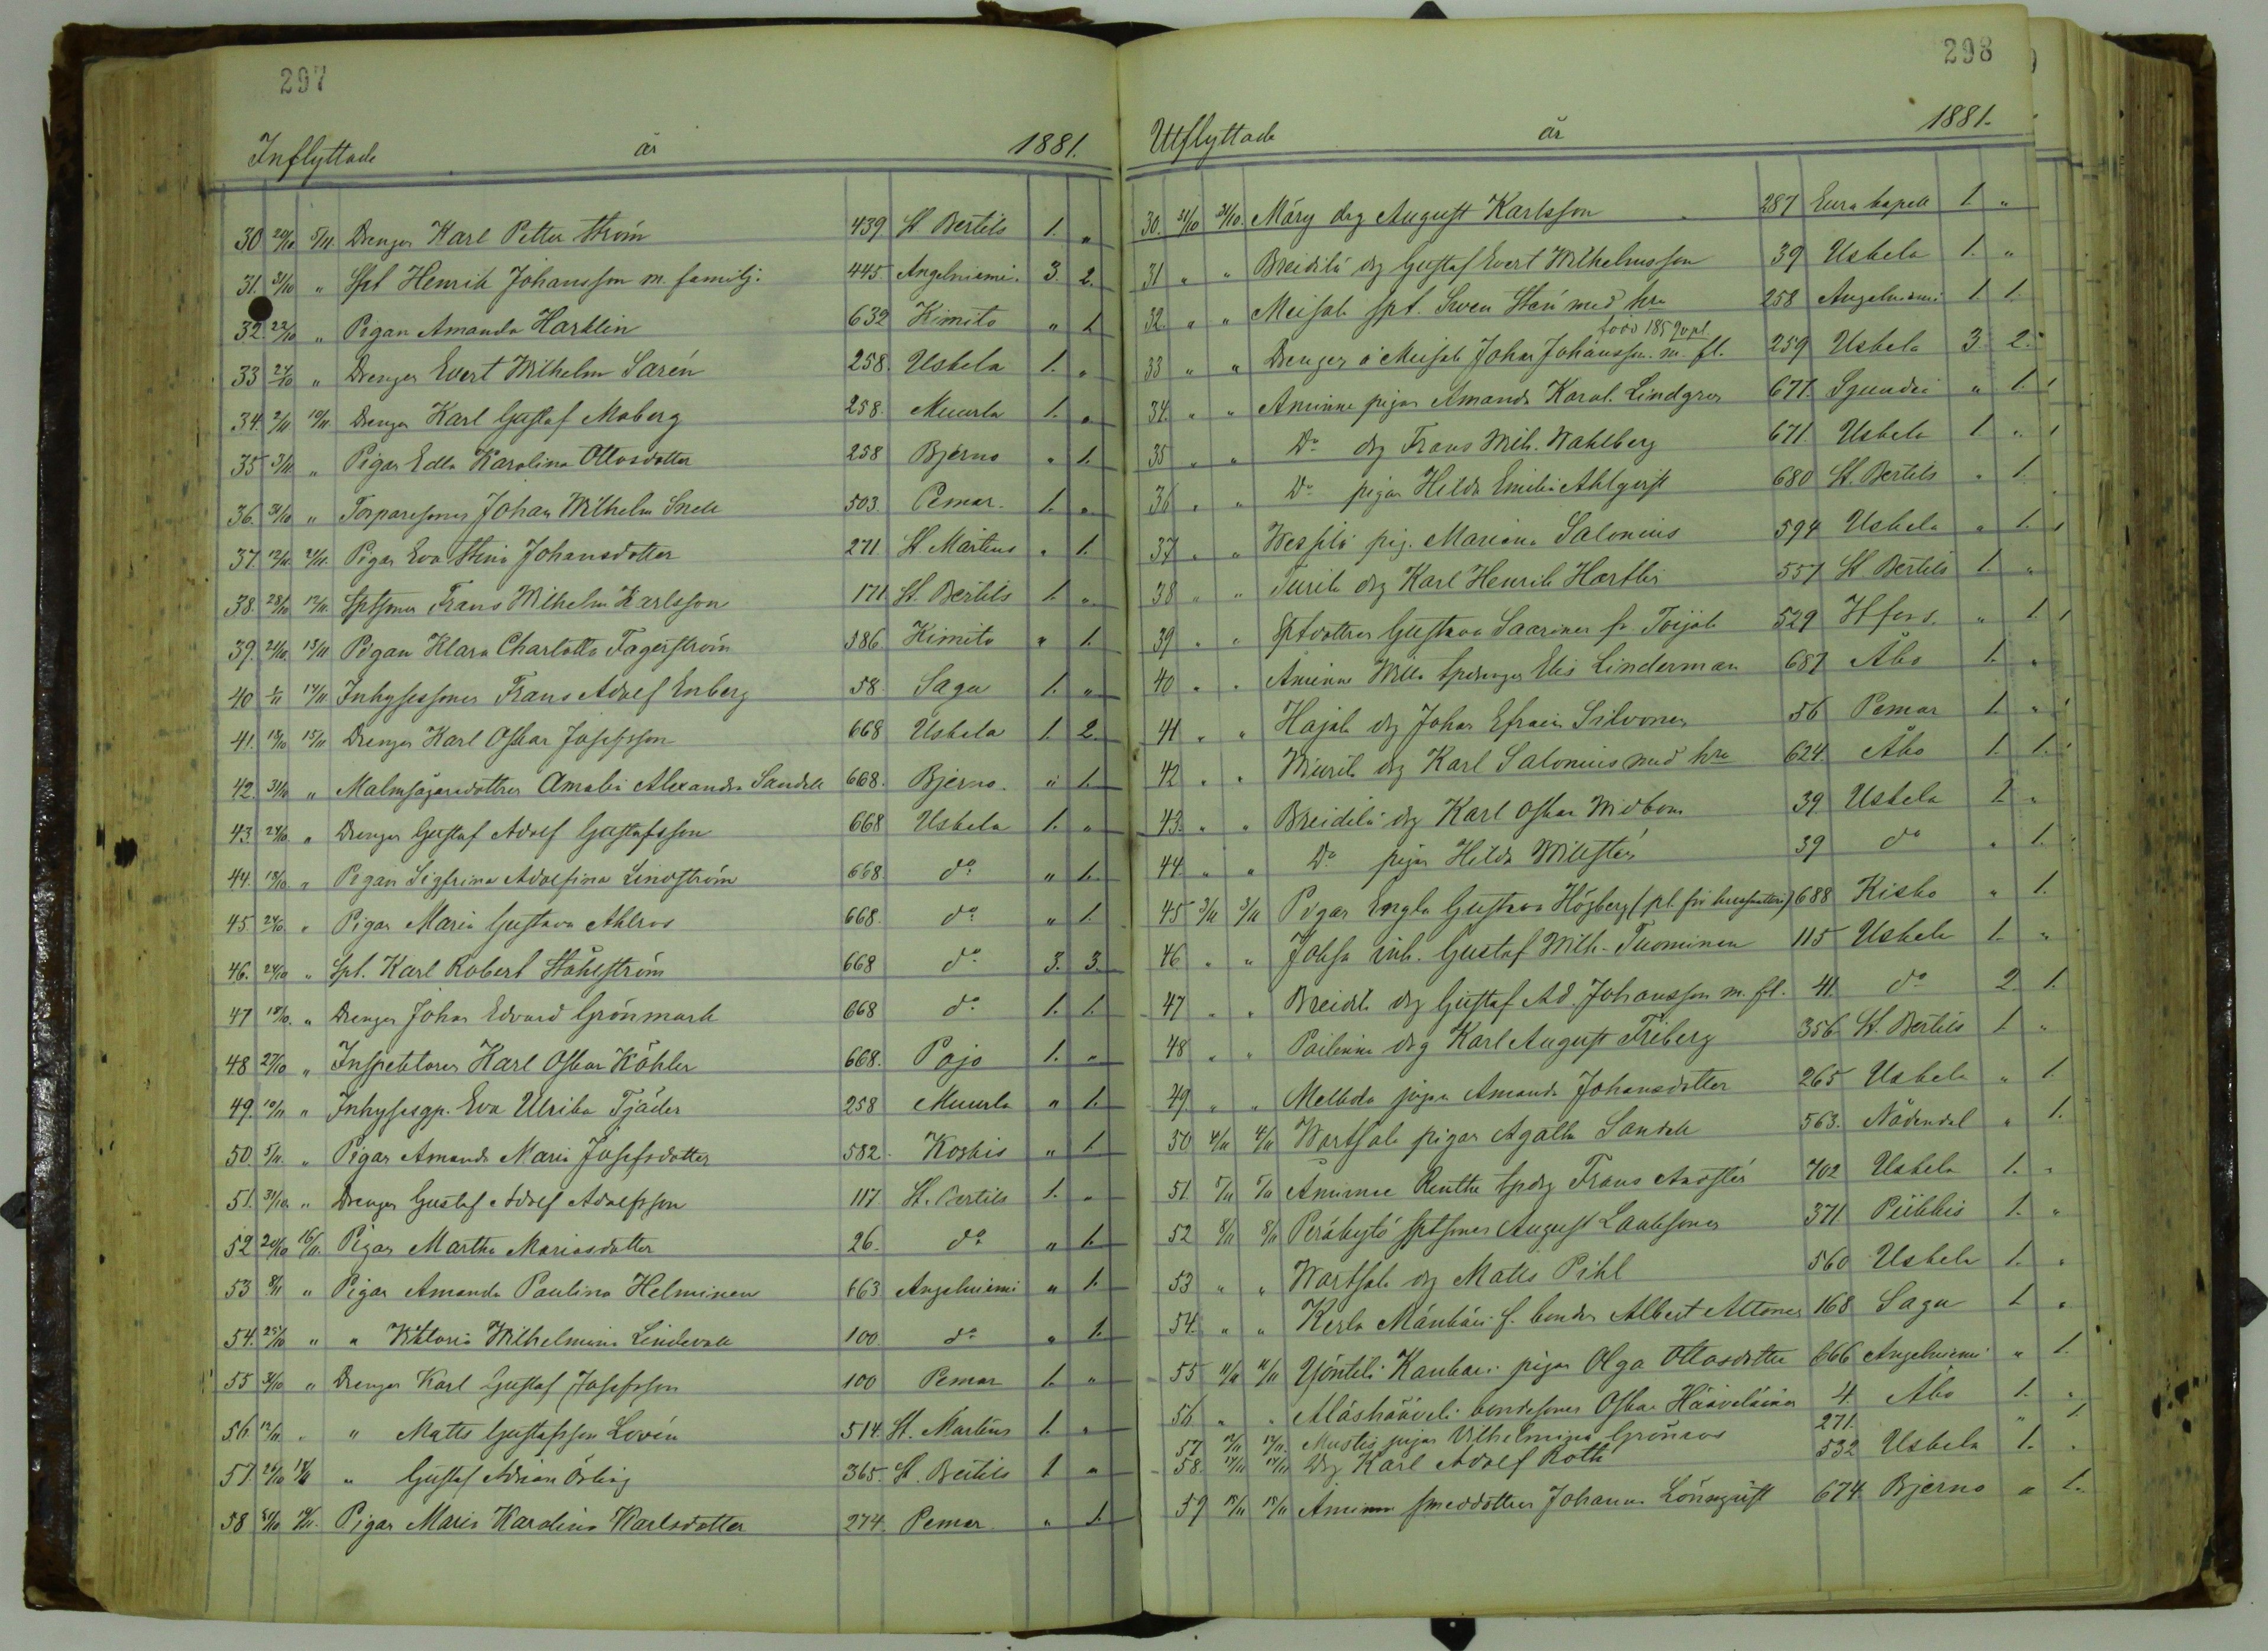 297
Inflyttade år 1881.
30 20/10 5/11 Drengen Karl Petter Ström 439 St Bertils 1. "
31. 31/10 " Spt Henrik Johansson m. familj. 445 Angelniemi. 3. 2.
32. 22/10 " Pigan Amanda Harklin 632 Kimito " 1
33 24/10 " Drengen Evert Wilhelm Sarén 258. Uskela 1. "
34. 2/11 10/11. Drengen Karl Gustaf Moberg 258. Muurla 1. "
35 3/11 " Pigan Edla Karolina Ottosdotter 258 Bjerno " 1.
36. 31/10 " Torparesonen Johan Wilhelm Snell 503. Pemar. 1. "
37. 12/11. Pigan Eva Stina Johansdotter 271 St Mårtens " 1.
38. 28/10 12/11. Sptsonen Frans Wilhelm Karlsson 171 St. Bertils 1. "
39. 24/10. 13/11 Pigan Klara Charlotta Fagerström 386. Kimito " 1.
40 14/11 Inhysessonen Frans Adolf Enberg 58. Sagu 1. "
41. 18/10 15/11 Drengen Karl Oskar Josefsson 668 Uskela 1. 2.
42. 31/10 " Malmjägaredottren Amalia Alexandra Sandell 668. Bjerno. " 1.
43. 24/10. " Drengen Gustaf Adolf Gustafsson 668 Uskela 1. "
44. 18/10 " Pigan Sigfrina Adolfina Lindström 668. do " 1.
45. 24/10 " Pigan Maria Gustava Ahlros 668. do " 1.
46. 24/10 " Spt. Karl Robert Ståhlström 668 do 3. 3.
47 18/10. " Drengen Johan Edvard Grönmark 668 do 1. 1.
48 27/10 " Inspektoren Karl Oskar Köhler 668. Pojo 1. "
49. 10/11 " Inhysesgp. Eva Ulrika Tjäder 258 Muurla " 1.
50. 5/11. " Pigan Amanda Maria Josefsdotter 582. Koskis " 1
51. 31/10. " Drengen Gustaf Adolf Adolfsson 117 St. Bertils 1. "
52 20/10 16/11. Pigan Martha Mariasdotter 26. do " 1.
53 8/11 " Pigan Amanda Paulina Helminen 663 Angelniemi " 1.
54. 25/10 " " Viktoria Wilhelmina Lindevall 100. do " 1.
55 31/10 " Drengen Karl Gustaf Josefsson 100 Pemar 1. "
56. 12/11 " " Matts Gustafsson Lovén 514. St. Mårtens 1. "
57. 24/10 18/11 " Gustaf Adrian Örling 365. St. Bertils 1 "
58 19/11. Pigan Maria Karolina Karlsdotter 274. Pemar " 1.
298
Utflyttade år 1881.
30. 31/10 31/10. Märy drg August Karlsson 287 Eura kapell 1. "
31 " " Breidilä drg Gustaf Evert Wilhelmsson 39 Uskela 1. "
32 " " Meisala spt. Sven Sten med hru 258 Angelniemi 1 1.
33 " " Drengen å Meisala Johan Johansson m. fl. 259 Uskela 3. 2.
34. " " Åminne pigan Amanda Karol. Lindgren 677. Sjundeå " 1.
35 " " Do drg Frans Wilh. Wahlberg 671 Uskela 1. "
36 " " Do pigan Hilda Emilia Ahlqvist 680 St. Bertils " 1.
37 " " pig. Mariana Salonius 594 Uskela " 1.
38 " " drg Karl Henrik Hartlin 557 St Bertils 1. "
39 " " Sptdottren Gustava Saarinen fr. Toijala 529 Hfors. " 1
40 " " Åminne Elis Linderman 687 Åbo 1. "
41 " " Hajala drg Johan Efraim Silvonen 56 Pemar 1. "
42 " " drg Karl Salonius med hru 624. Åbo 1. 1.
43. " " Breidilä drg Karl Oskar Widbom 39 Uskela 1. "
44. " " Do pigan Hilda Willstén 39 do " 1.
45 3/11 3/11 Pigan Engla Gustava Högberg 688 Kisko " 1.
46 " " inh. Gustaf Wilh. Tuominen 115 Uskela 1. "
47 " " Breidilä drg Gustaf Ad. Johansson m. fl. 41. do 2. 1.
48 " " Pailinna drg Karl August Friberg 356 St. Bertils 1. "
49. " " Mellola pigan Amanda Johansdotter 265 Uskela " 1
50 4/11 4/11 Wartsala pigan Agatha Sandell 563. Nådendal " 1.
51. 7/11 7/11 Åminne Frans Andstén 702 Uskela 1. "
52 8/11 8/11 Peräkylä sptsonen August Laaksonen 371 Piikkis 1. "
53 " " Wartsala drg Matts Pihl 560 Uskela 1. "
54. " " Kerla Mäenkäri f. bonden Albert Aitonen 168 Sagu 1. "
55 11/11 11/11 Yöntilä pigan Olga Ottosdotter 666 Angelniemi " 1.
56 " " bondesonen Oskar 4. Åbo 1. "
57. 17/11. pigan Vilhelmina Grönroos 271. " 1.
58. 17/11 Drg Karl Adolf Roth 532 Uskela 1. "
59 18/11 18/11 Åminne smeddottren Johanna Lönnqvist 674 Bjerno " 1.